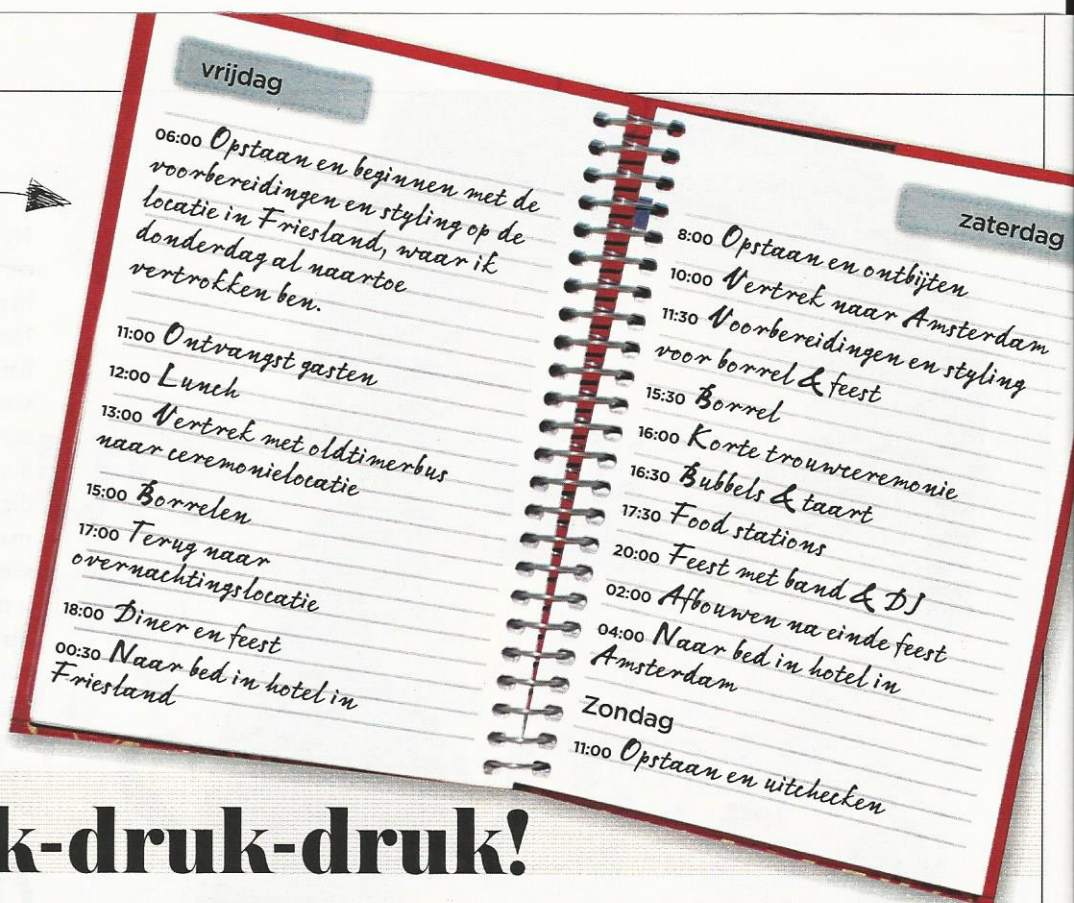 vrijdag
06:00 Opstaan en beginnen met de
voorbereidingen en styling op de
locatie in Friesland, waar ik
donderdag al naartoe
vertrokken ben.
11:00 Ontvangst gasten
12:00 Lunch
13:00 Vertrek met oldtimerbus
naar ceremonielocatie
15:00 Borrelen
17:00 Terug naar
overnachtingslocatie
18:00 Diner en feest
00:30 Naar bed in hotel in
Friesland
zaterdag
8:00 Opstaan en ontbijten
10:00 Vertrek naar Amsterdam
11:30 Voorbereidingen en styling
voor borrel & feest
15:30 Borrel
16:00 Korte trouwceremonie
16:30 Bubbels & taart
17:30 Food stations
20:00 Feest met band & DJ
02:00 Afbouwen na einde feest
04:00 Naar bed in hotel in
Amsterdam
Zondag
11:00 Opstaan en uitchecken
k-druk-druk!